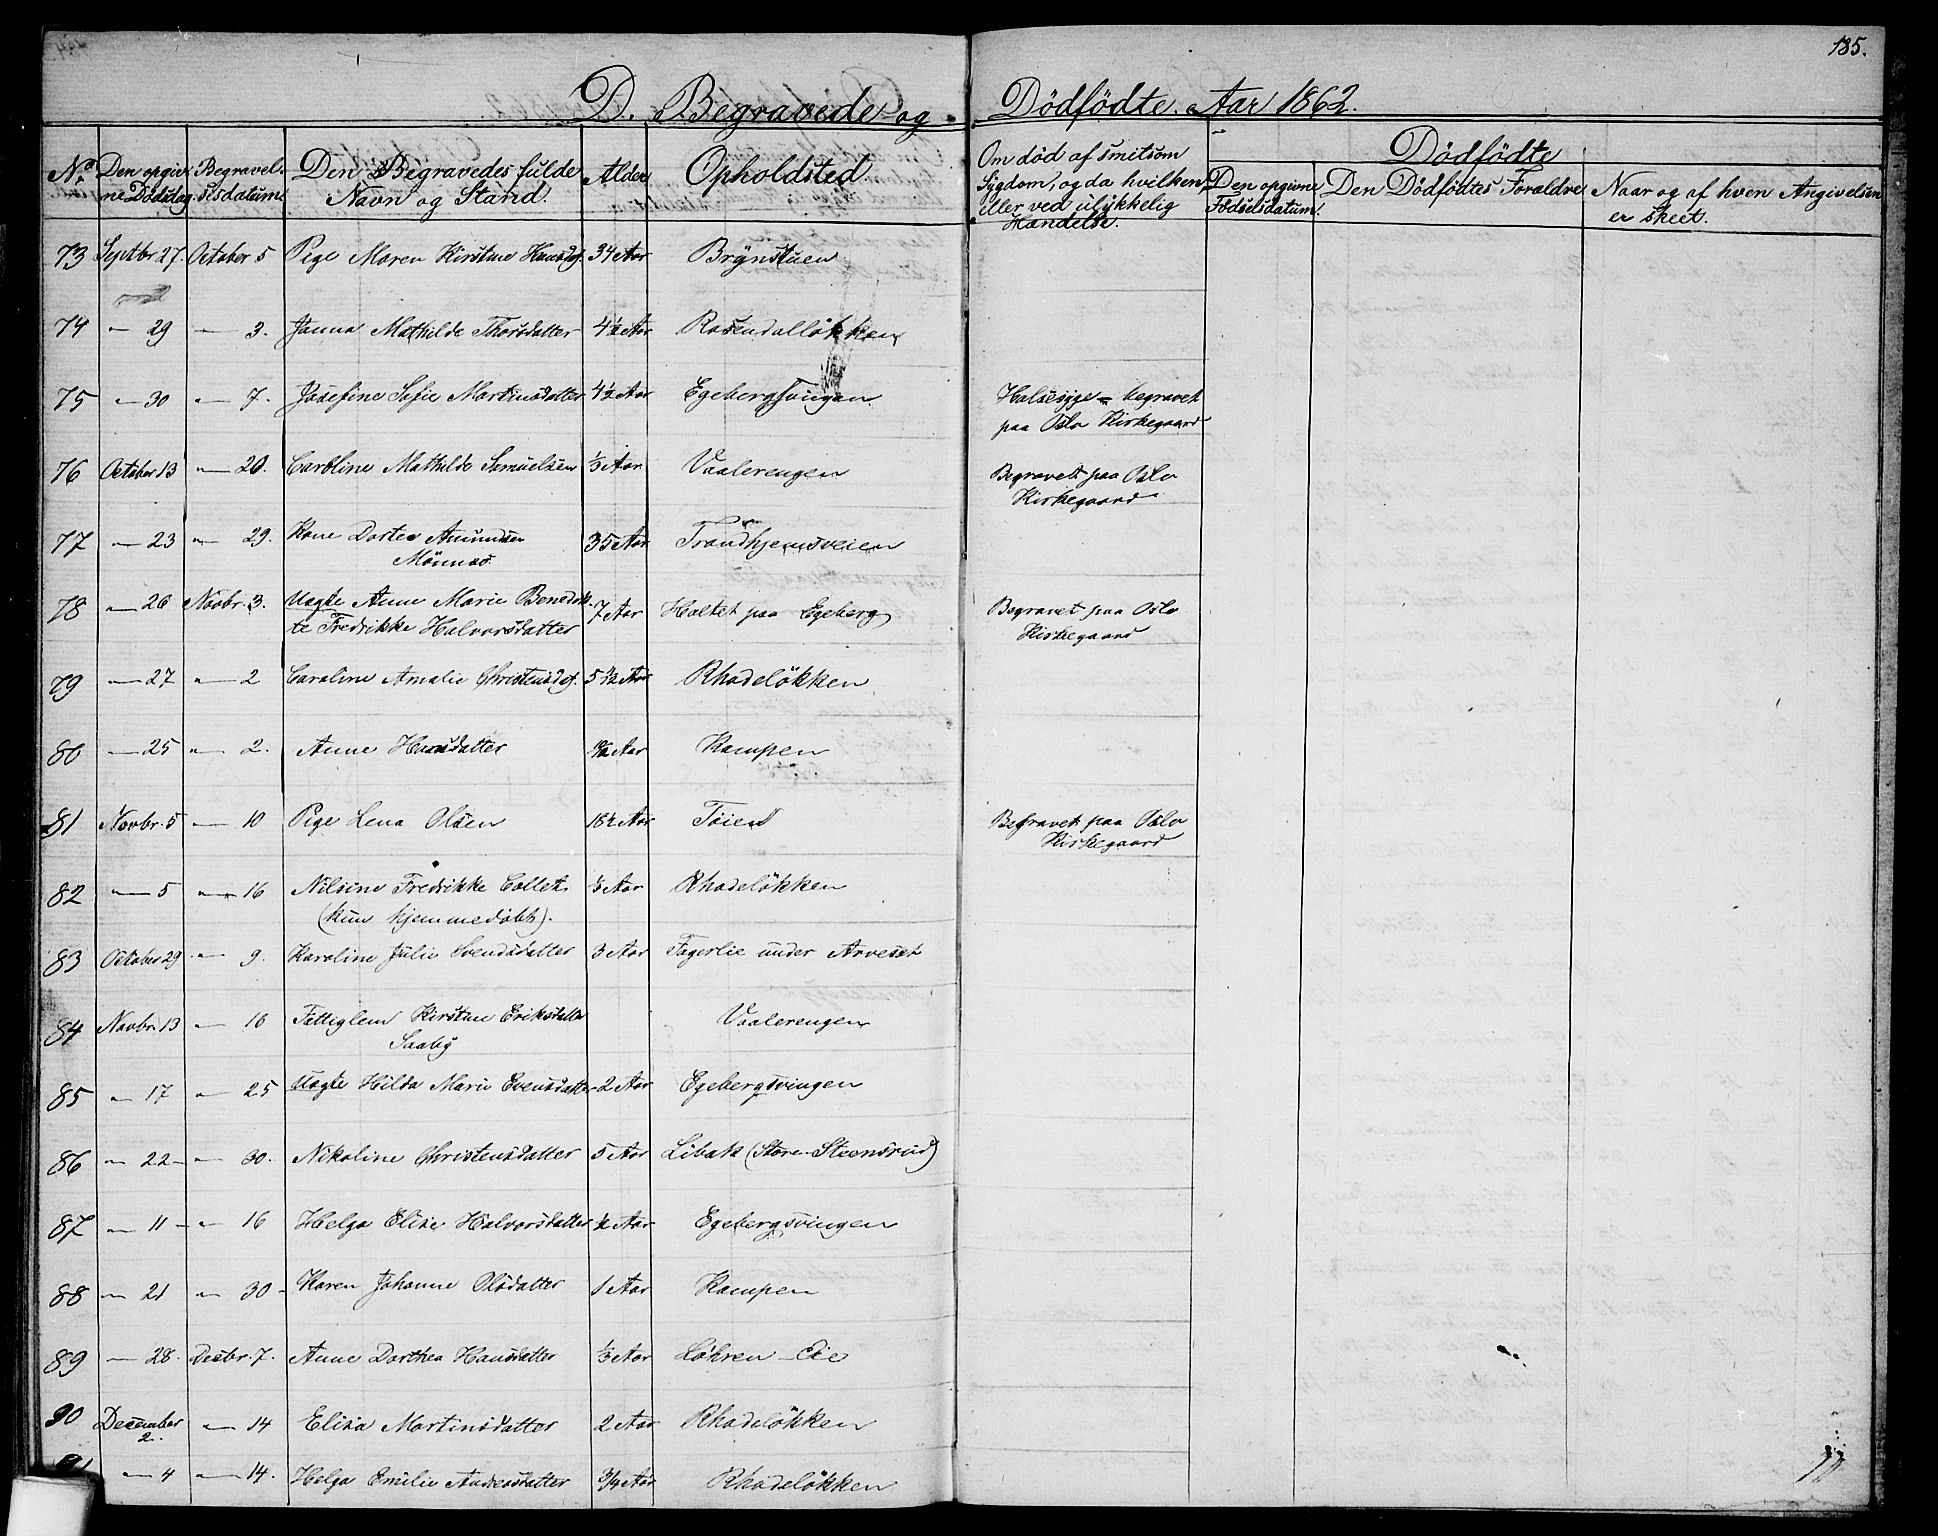 185.
D. Begravede og Dödfödte. Aar 1862.
No. Den opgivne Dödsdag. Begravelsesdatum. Den Begravedes fulde Navn og Stand. Alder Opholdsted. Om död af smitsom Sygdom, og da hvilken eller ved ulykkelig Hændelse. Dödfödte
Den opgivne Födselsdatum. Den Dödfödtes Forældre Naar og af hvem Angivelsen er skeet.
73 Septbr 27. October 5 Pige Maren Kirstine Hansdtr. 34 Aar Brynstuen
74 — 29 — 3. Janna Mathilde Thorsdatter 4½ Aar Rosendalløkken
75 — 30 — 7. Josefine Sofie Martinsdatter 4½ Aar Egebergsvingen Halssyge — begravet
paa Oslo Kirkegaard
76 October 13 — 20. Caroline Mathilde Samuelsen ⅓ Aar Vaalerengen Begravet paa Oslo
Kirkegaard
77 — 23 — 29. Kone Dortea Amundsen 35 Aar Trondhjemsveien
78 — 26 Novbr. 3. Uægte Anne Marie Benedik- 7 Aar Holtet paa Egeberg Begravet paa Oslo
te Fredrikke Halvorsdatter Kirkegaard
79 — 27 — 2 Caroline Amalie Christensdtr. 5 ½ Aar Rhodeløkken
80 — 25 — 2. Anne Hansdatter Aar Kampen
81 Novbr. 5 — 10 Pige Lena Olsen 18½ Aar Töien Begravet paa Oslo
Kirkegaard
82 — 5 — 16 Nilsine Fredrikke Collet Aar Rhodeløkken
(kun hjemmedöbt).
83 October 29 — 9. Karoline Julie Svendsdatter 3 Aar Fagerlie under Arveset
84 Novbr. 13 — 16 Fattiglem Kirstine Eriksdatter Vaalerengen
Saaby
85 — 17 — 25 Uægte Hilda Marie Evensdatter 2 Aar Egebergsvingen
86 — 22 — 30. Nikoline Christensdatter 5 Aar Libak (Store-Steensrud)
87 — 11 — 16 Helga Elise Halvorsdatter ½ Aar Egebergsvingen
88 — 21 — 30 — Karen Johanne Olsdatter 1 Aar Kampen
89 — 28. Decbr. 7. Anne Dorthea Hansdatter ⅓ Aar Løkren — Eie
90 December 2. — 14 Elisa Martinsdatter 2 Aar Rhodeløkken
91 — 4 — 14. Helga Emilie Andersdatter ¾ Aar Rhodeløkken